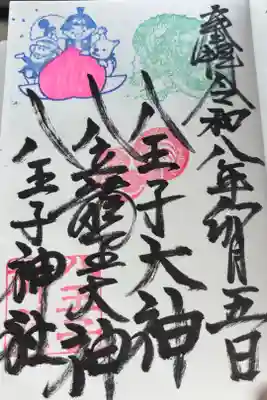 奉拝 令和八年卯月五日
八王子大神
八大龍王大神
八王子神社